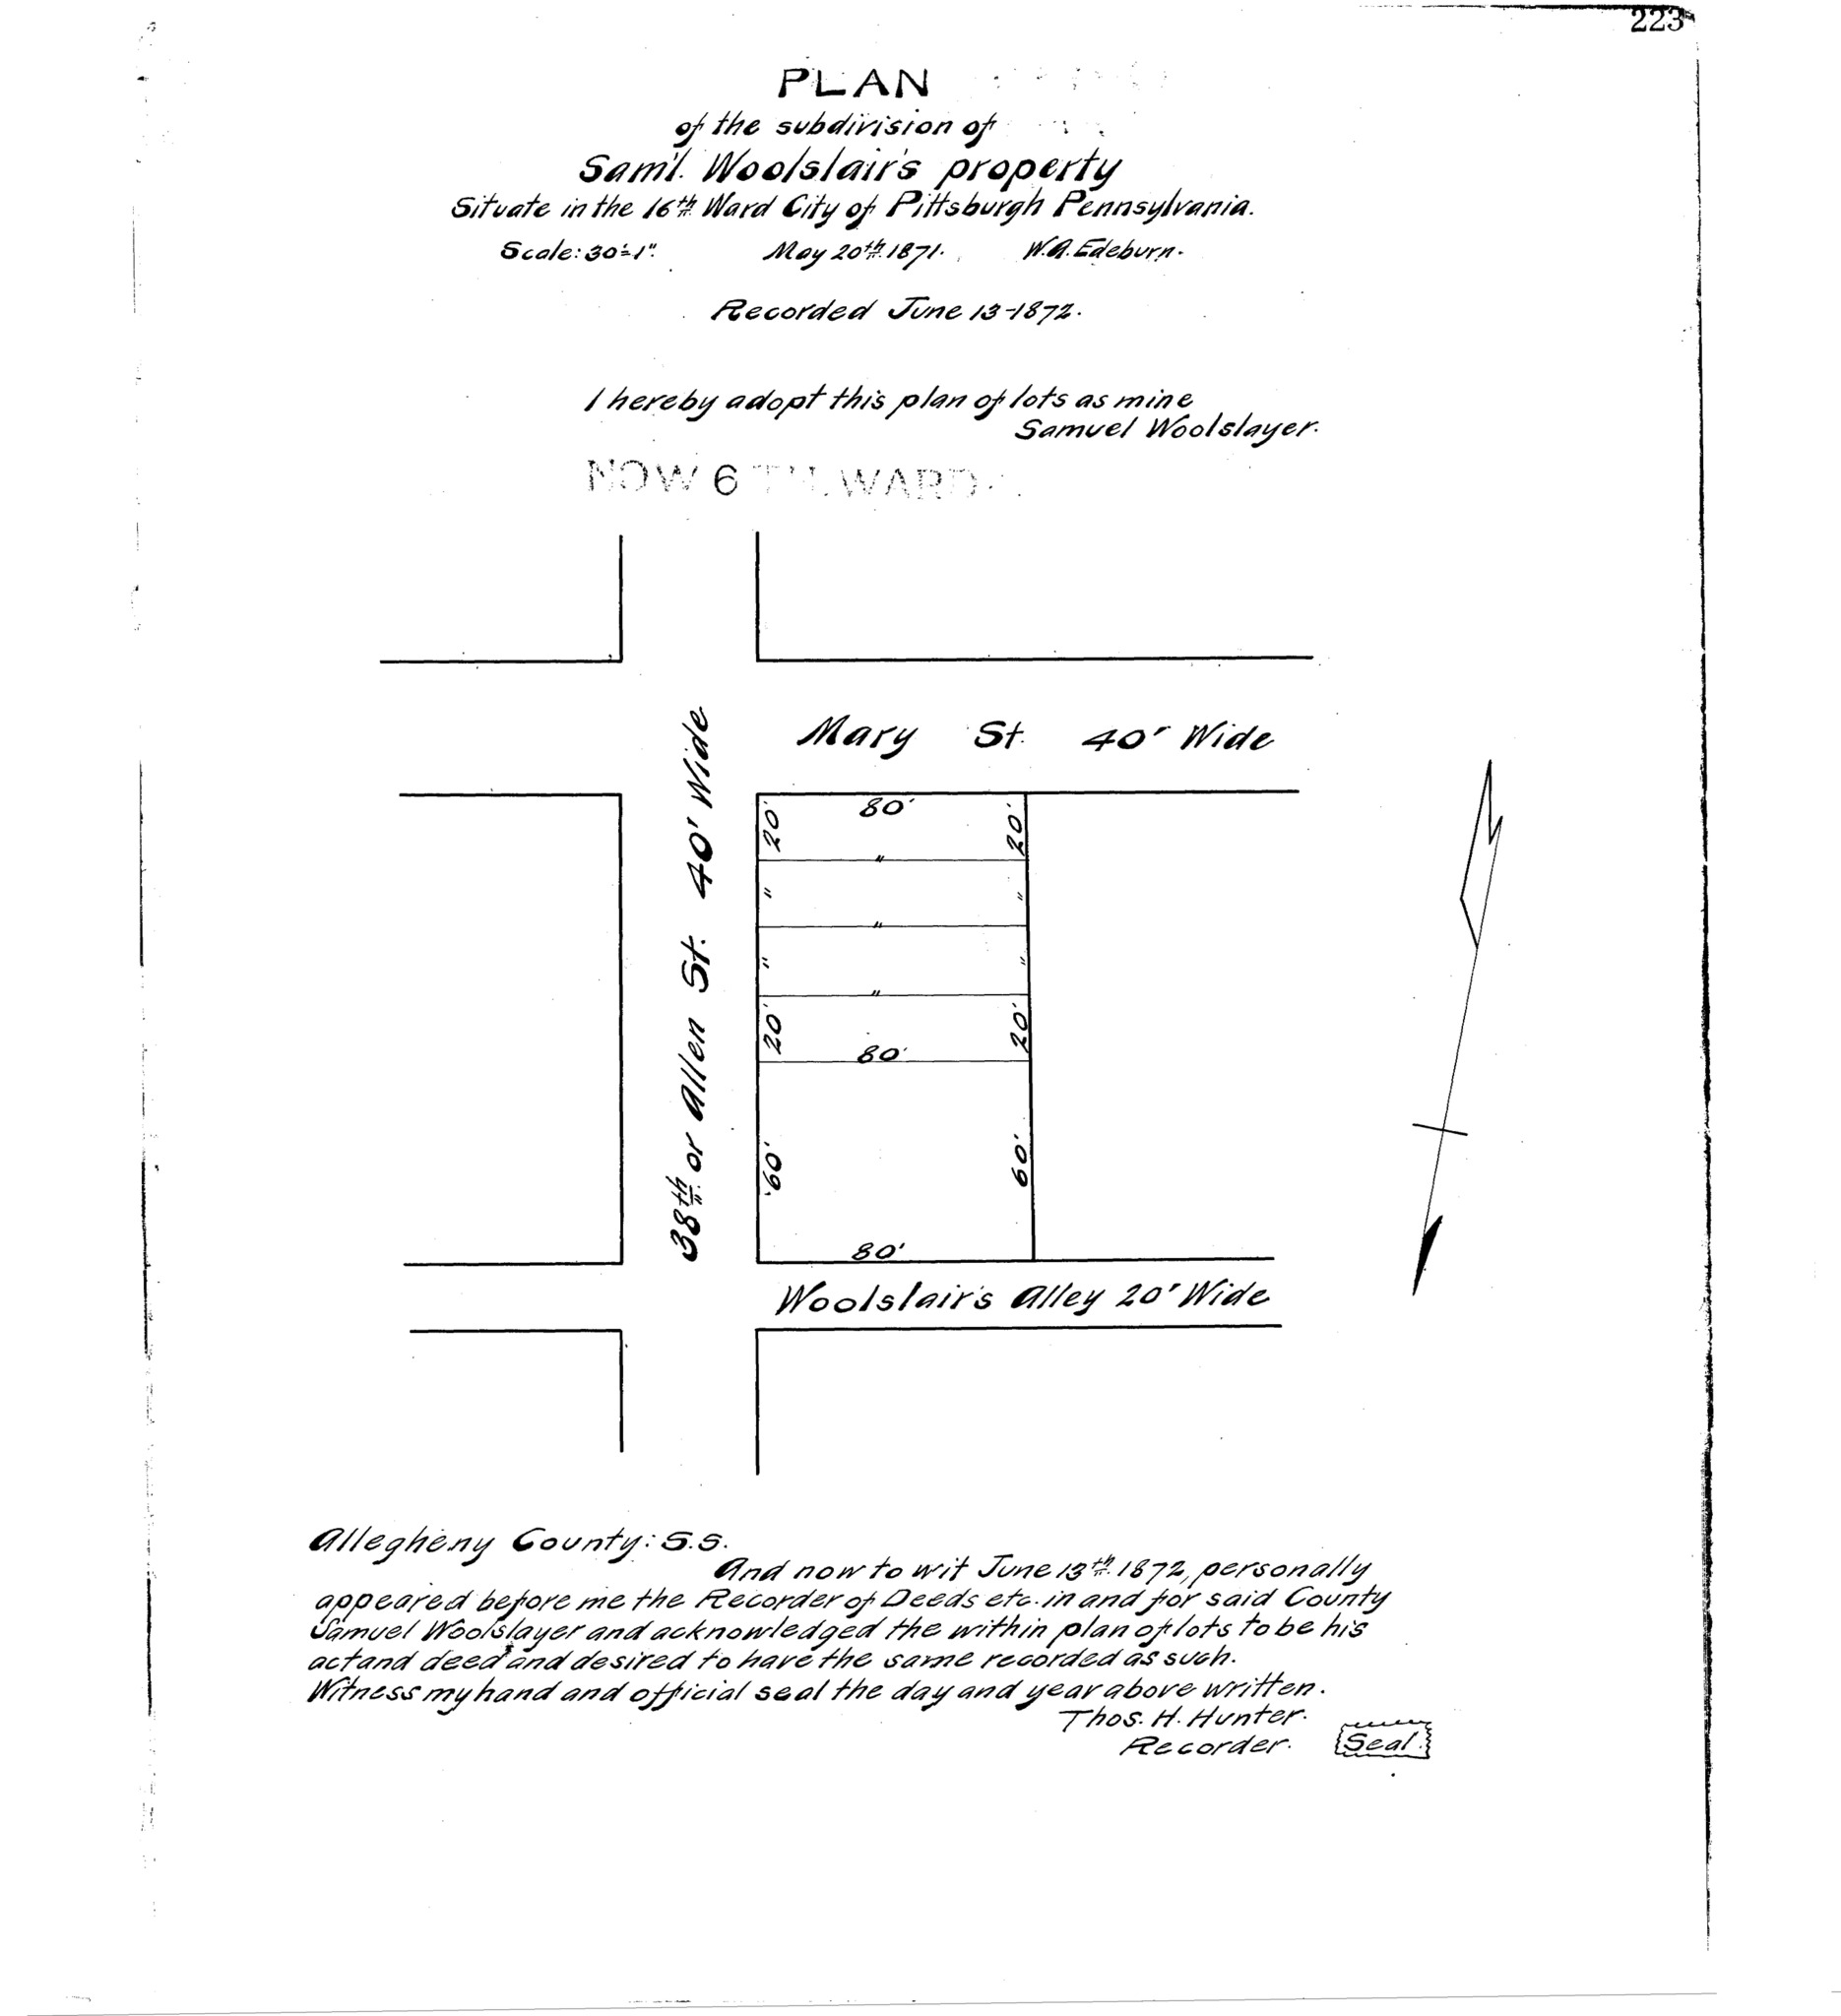 223
PLAN
of the subdivision of
Sam'l. Woolslair's property
Situate in the 16th Ward City of Pittsburgh Pennsylvania.
Scale: 30'=1". May 20th 1871. W.A. Edeburn.
Recorded June 13-1872.
I hereby adopt this plan of lots as mine
Samuel Woolslayer.
NOW 6 TH. WARD
Mary St. 40' Wide
38th or Allen St. 40' Wide
80'
20' 20'
"
" "
"
" "
"
20' 20'
80'
60' 60'
80'
Woolslair's Alley 20' Wide
Allegheny County: S.S.
And now to wit June 13th 1872, personally
appeared before me the Recorder of Deeds etc. in and for said County
Samuel Woolslayer and acknowledged the within plan of lots to be his
act and deed and desired to have the same recorded as such.
Witness my hand and official seal the day and year above written.
Thos. H. Hunter.
Recorder. Seal.